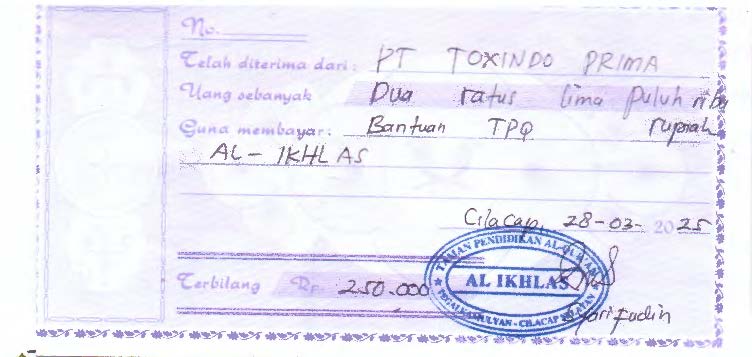 No.
Telah diterima dari: PT TOXINDO PRIMA
Uang sebanyak Dua ratus lima puluh ribu
Guna membayar: Bantuan TPQ rupiah
AL-IKHLAS
Cilacap, 28-03-2025
TAMAN PENDIDIKAN AL-QUR'AN
Terbilang Rp. 250.000
AL IKHLAS
CILACAP SELATAN